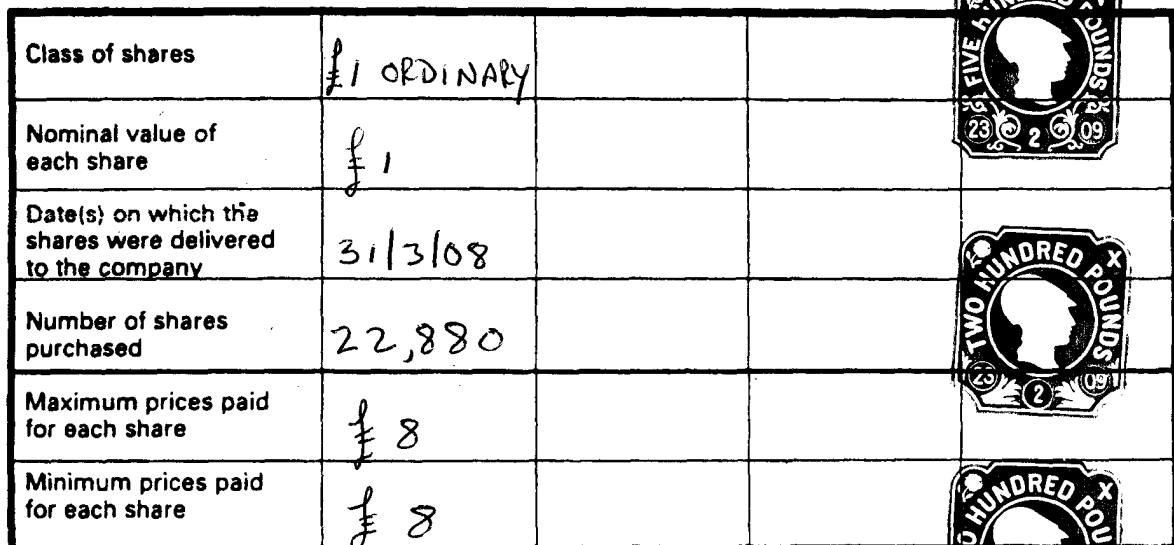 Class of shares
£1 ORDINARY
Nominal value of
each share
£ 1
Date(s) on which the
shares were delivered
to the company
31/3/08
Number of shares
purchased
22,880
Maximum prices paid
for each share
£ 8
Minimum prices paid
for each share
£ 8
FIVE HUNDRED POUNDS
23 2 09
TWO HUNDRED POUNDS
X
23 2 09
HUNDRED
X